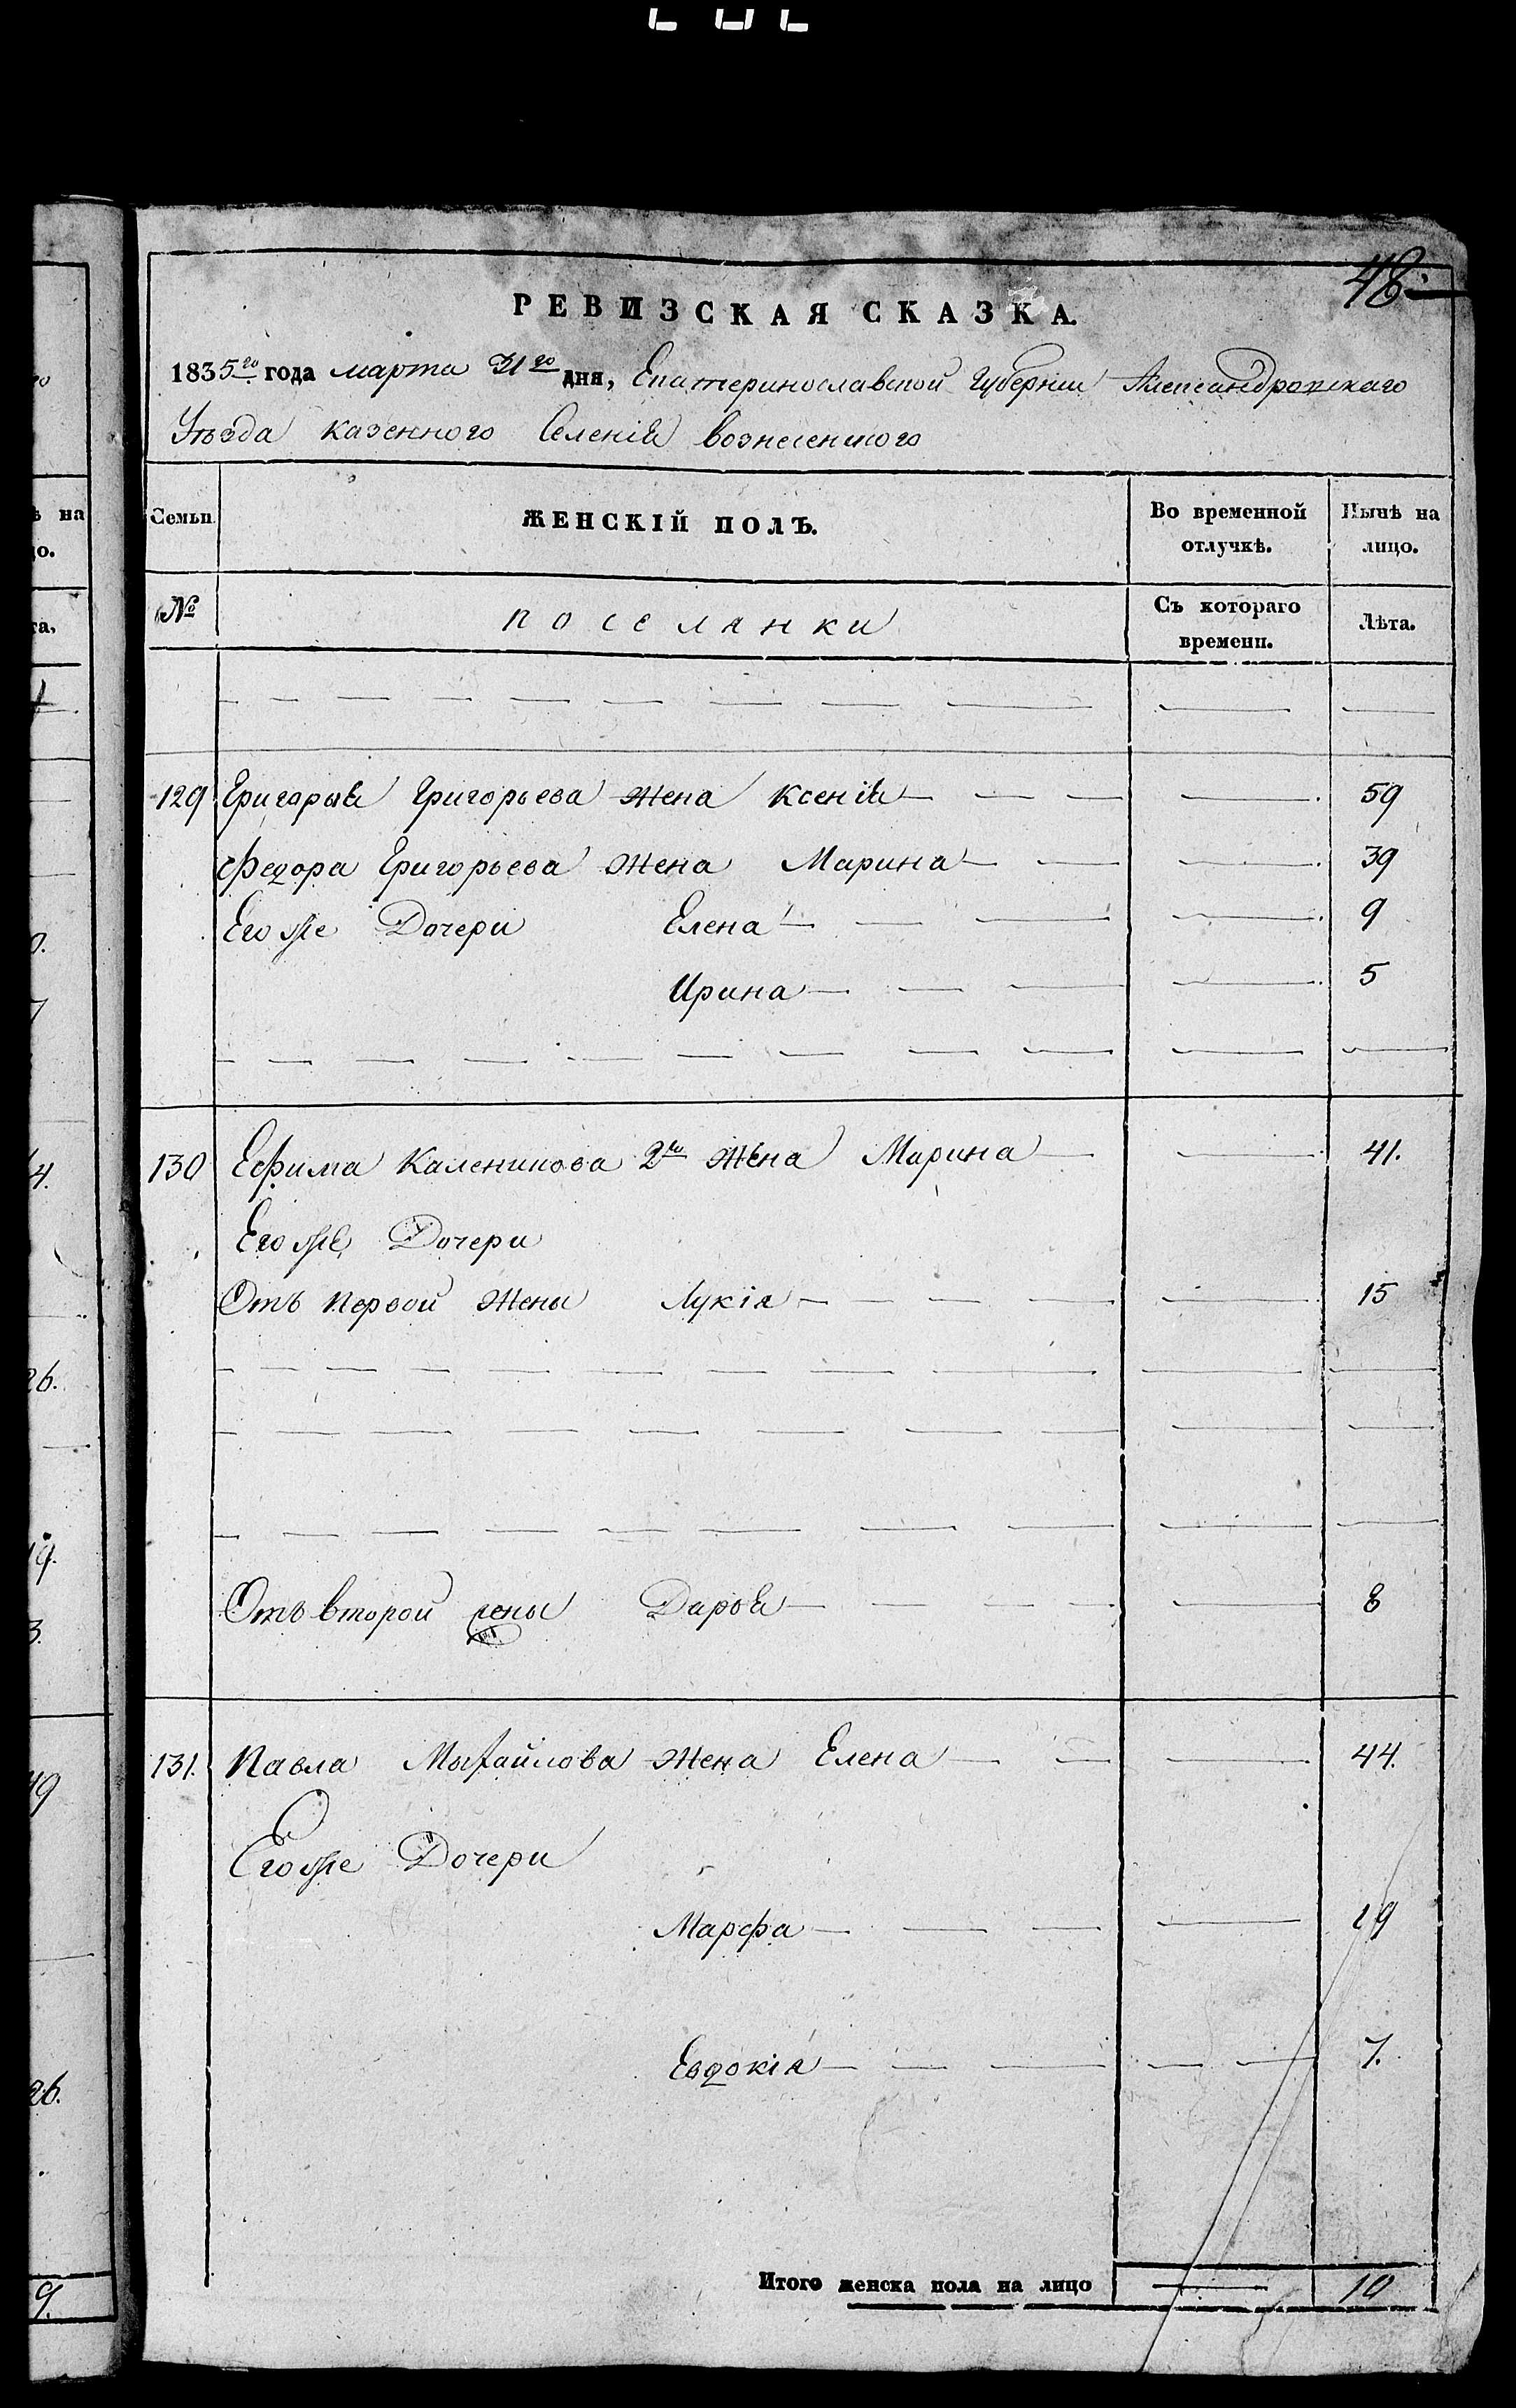 48
РЕВИЗСКАЯ СКАЗКА.
1835го года марта 31го дня, Екатеринославской Губерніи Александровскаго
Уѣзда казенного Селенія вознесенского
Семьи ЖЕНСКІЙ ПОЛЪ. Во временной отлучкѣ. Нынѣ на лицо.
№ поселянки Съ котораго времени. Лѣта.
129 Григорыя Григорьева жена Ксенія 59
Федора Григорьева жена Марина 39
Егоже Дочери Елена 9
Ирина 5
130 Ефима Каленикова 2я жена Марина 41.
Егоже Дочери
Отъ первой жены Лукія 15
Отъ второй жены Дарья 8
131. Павла Мыхайлова жена Елена 44.
Егоже Дочери
Марфа 19
Евдокія 7.
Итого женска пола на лицо 10
ѣ на
цо.
та,
0.
7
4.
26.
19.
3.
49
26.
9.